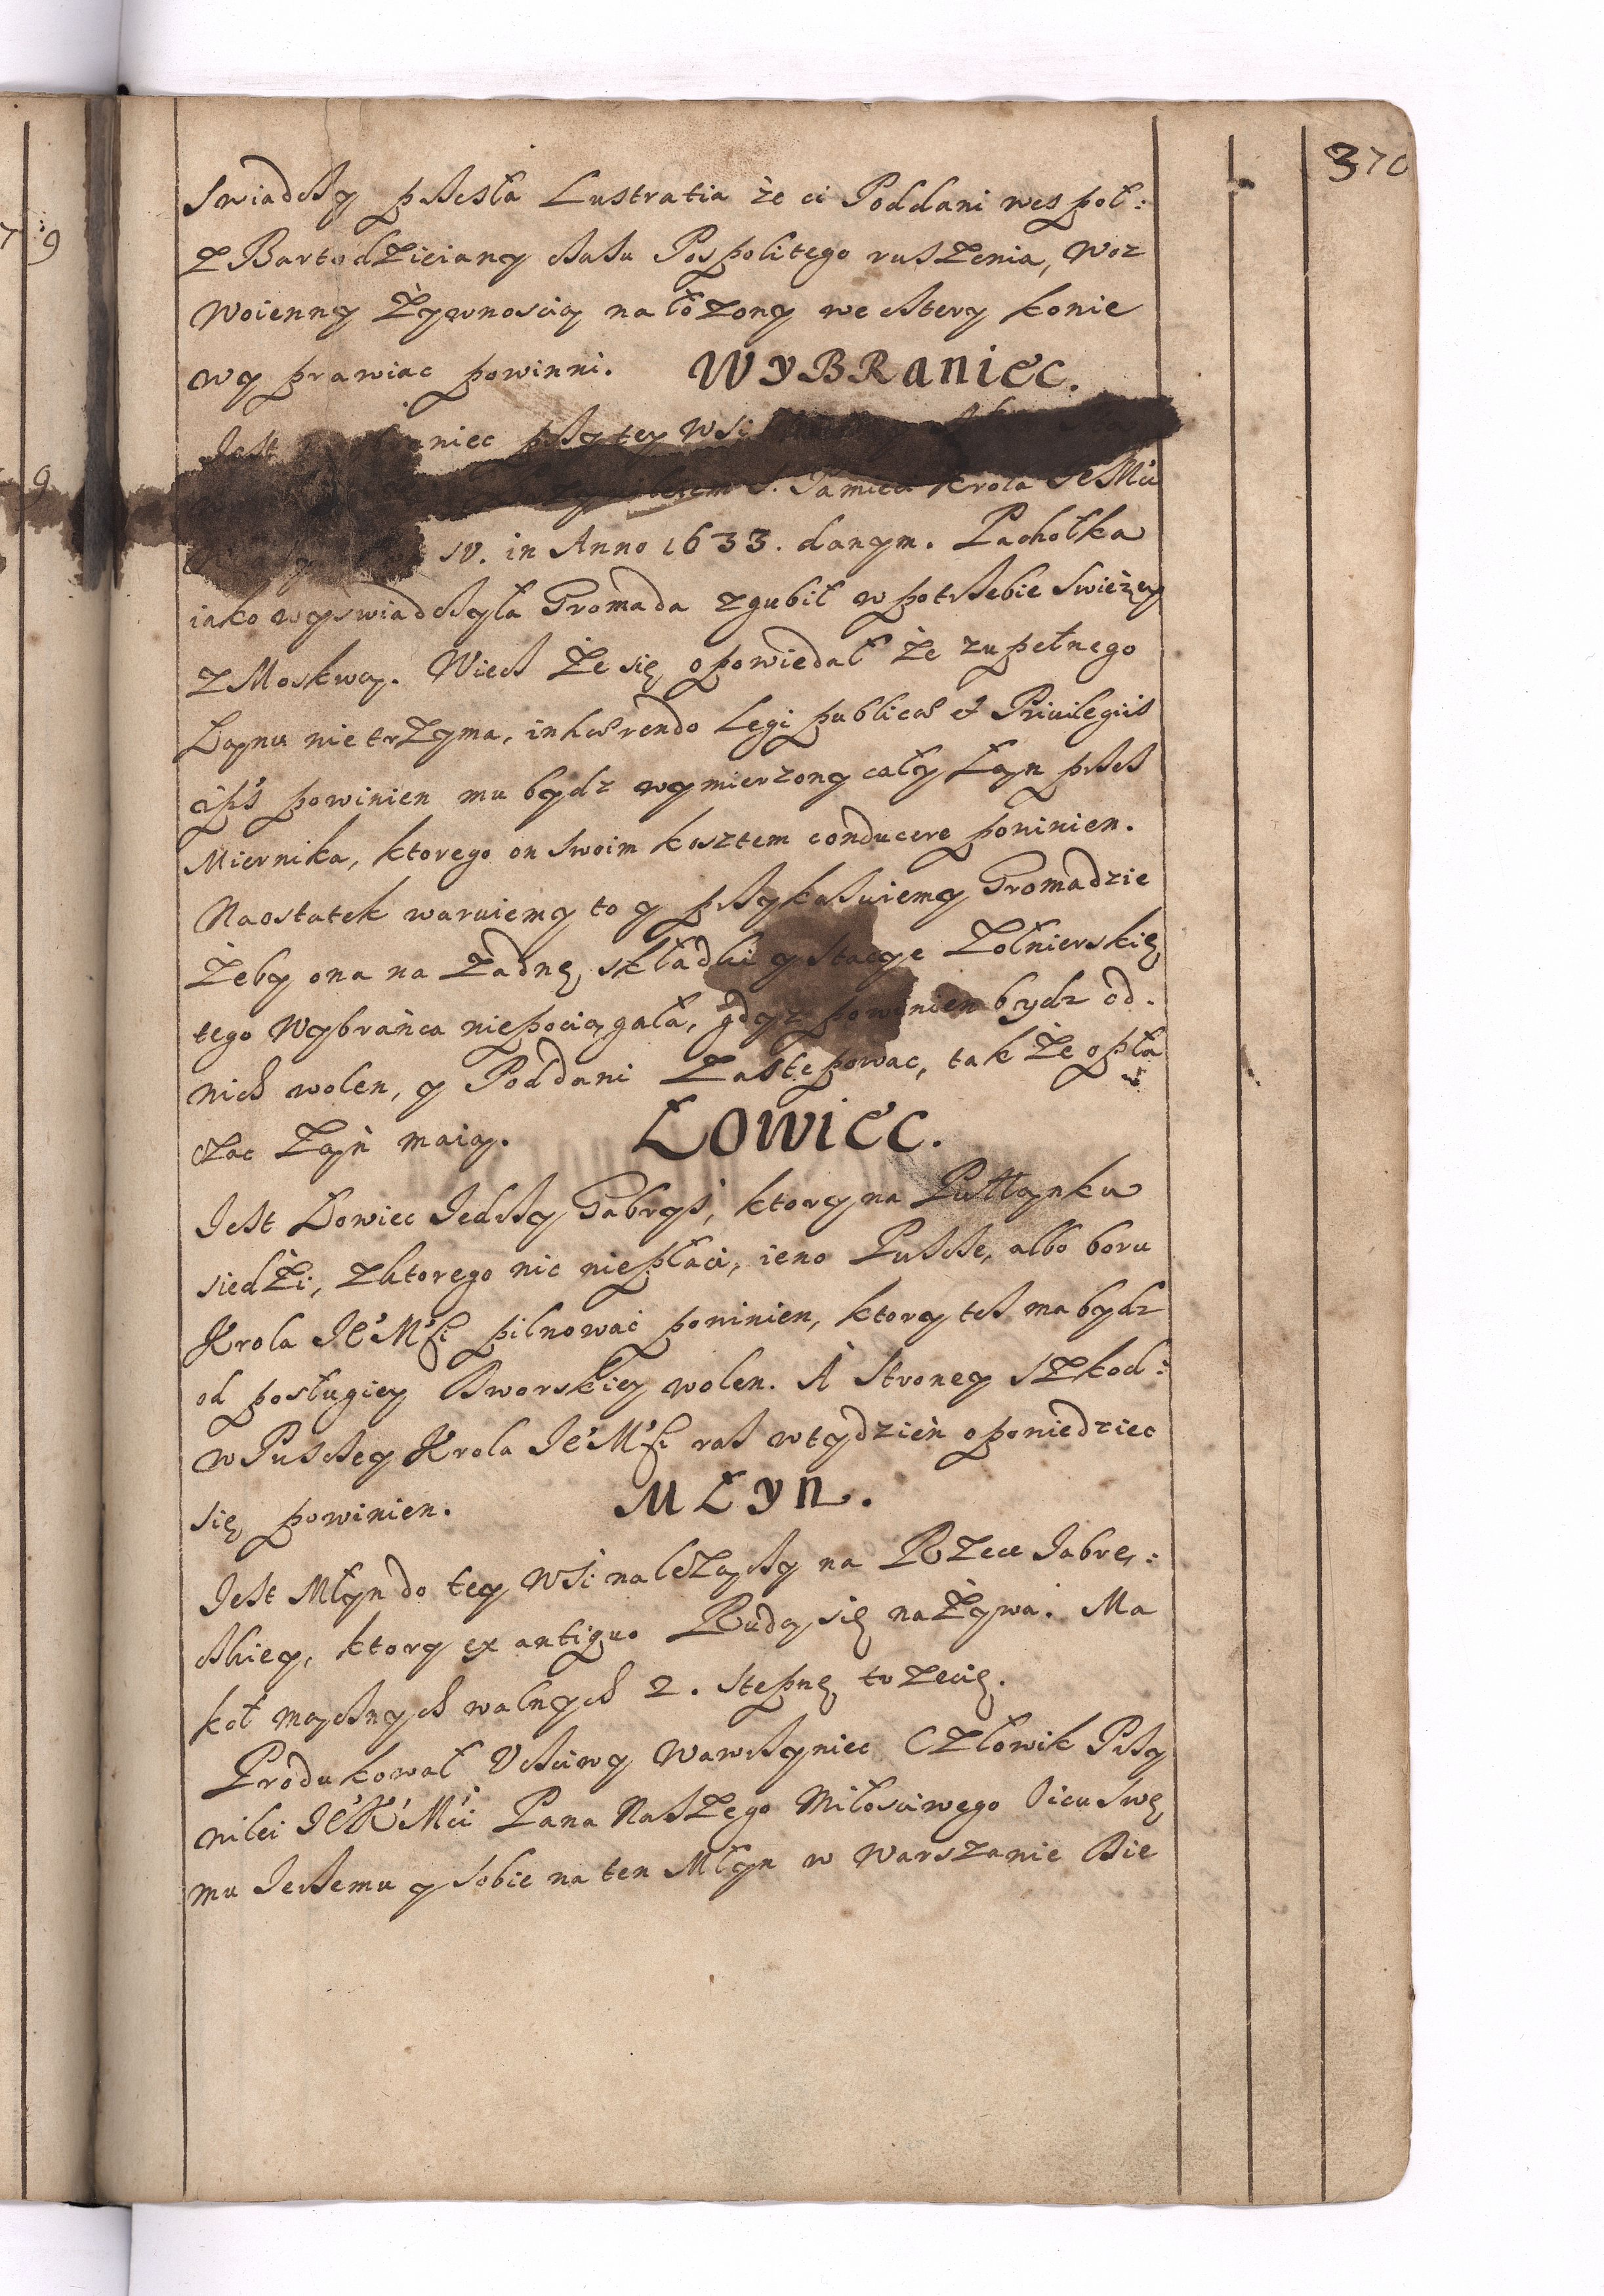 370
Swiadczy przeszła Lustratia że ci Poddani wespoł:
z Bartodzieiany czasu Pospolitego ruszenia, woz
woienny żywnoscią nałożony we cztery konie
wyprawiac powinni. WYBRANIEC.
Jest niec przy tey wsi
S. Pamieci Krola JeMci
IV. in Anno 1633. danym. Pachołka
iako wyswiadczyła Gromada zgubił w potrzebie swieżey
z Moskwą. Wiecz że się opowiedał że zupełnego
Łanu nie trzyma, inhærendo Legi publicæ et Privilegiis
ips powinien mu bydz wymierzony cały Łan przez
Miernika, ktorego on swoim kosztem conducere powinien.
Naostatek waruiemy to y przykazuiemy Gromadzie
Żeby ona na żadnę składki y stacye żołnierskię
tego Wybrańca niepociągała, gdyz powinien bydz od.
nich wolen, y Poddani zastępowac, tak że opła
czac Łan maią. ŁOWIEC.
Jest Łowiec Jedczy Gabryś, ktory na Pułłanku
siedzi, z ktorego nic niepłaci, ieno Puszcze, albo boru
Krola Je°M°sci pilnować powinien, ktory też ma bydz
od posługiey Dworskiey wolen. A strony szkod:
w Puszczey Krola Je°M°sci raz w tydzień opowiedziec
się powinien. MŁYN.
Jest Młyn do tey wsi należączy na Rzece Jabrę:
ckiey, ktory ex antiquo Rudą się nażywa. Ma
koł mącznych walnych 2. stępnę trzecię.
Produkował Uczciwy Wawrzyniec Człowik Przy
wilei Je°K°Mci Pana Naszego Miłosciwego Oicu swę
mu Jerzemu y sobie na ten Młyn w Warszawie Die